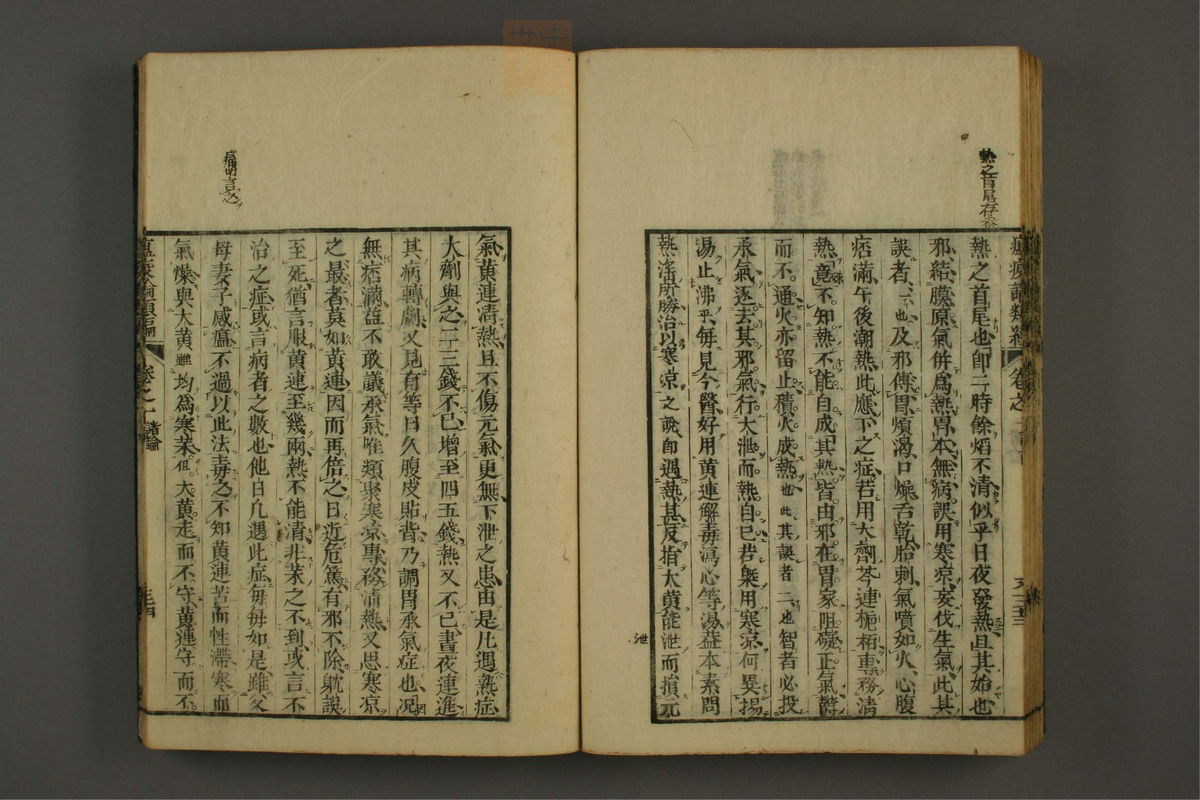 熱之首尾也卽二時餘焰不清似乎日夜發熱且其始也
邪結膜原氣併爲熱胃本無病誤用寒凉妄伐生氣此其
誤者一也及邪傳胃煩渴口燥舌乾胎刺氣噴如火心腹
痞滿午後潮熱此應下之症若用大劑芩連梔栢專務清
熱竟不知熱不能自成其熱皆由邪在胃家阻礙正氣鬱
而不通火亦留止積火成熱也此其誤者二也智者必投
承氣逐去其邪氣行火泄而熱自已若槩用寒凉何異揚
湯止沸乎毎見今醫好用黄連解毒瀉心等湯蓋本素問
熱淫所勝治以寒凉之說卽遇熱甚反指大黄能泄而損元
氣黄連清熱且不傷元氣更無下泄之患由是凡遇熱症
大劑與之二三錢不已增至四五錢熱又不已晝夜連進
其病轉劇又見有等日久腹皮貼背乃調胃承氣症也况
無痞滿益不敢議承氣唯類聚寒凉專務清熱又思寒凉
之最者莫如黄連因而再倍之日近危篤有邪不除躭誤
至死猶言服黄連至幾兩熱不能清非茱之不到或言不
治之症或言病者之數也他日凡遇此症毎毎如是雖父
母妻子感瘟不過以此法毒之不知黄連苦而性滯寒而
氣燥與大黄雖均爲寒茱但大黄走而不守黄連守而不